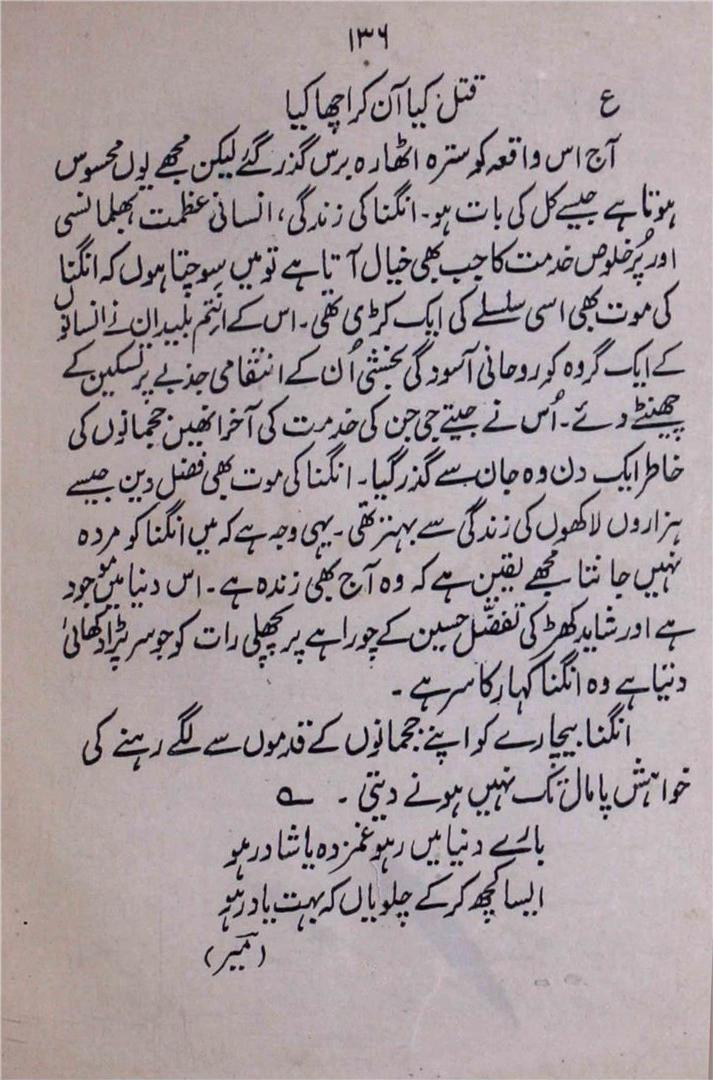 ۱۳۶
ع قتل کیا آن کر اچھا کیا
آج اس واقعہ کو سترہ اٹھارہ برس گذر گئے لیکن مجھے یوں محسوس
ہوتا ہے جیسے کل کی بات ہو۔ انگنا کی زندگی، انسانی عظمت، بھلمانسی
اور پُر خلوص خدمت کا جب بھی خیال آتا ہے تو میں سوچتا ہوں کہ انگنا
کی موت بھی اسی سلسلے کی ایک کڑی تھی۔ اس کے انتم بلیدان نے انسانوں
کے ایک گروہ کو روحانی آسودگی بخشی اُن کے انتقامی جذبے پر تسکین کے
چھینٹے دئے۔ اُس نے جیتے جی جن کی خدمت کی آخر انھیں ججمانوں کی
خاطر ایک دن وہ جان سے گذر گیا۔ انگنا کی موت بھی فضل دین جیسے
ہزاروں لاکھوں کی زندگی سے بہتر تھی۔ یہی وجہ ہے کہ میں انگنا کو مردہ
نہیں جانتا مجھے یقین ہے کہ وہ آج بھی زندہ ہے۔ اس دنیا میں موجود
ہے اور شاید کھڑکی تفضّل حسین کے چوراہے پر پچھلی رات کو جو سر پڑا دکھائی
دیتا ہے وہ انگنا کہار کا سر ہے۔
انگنا بیچارے کو اپنے ججمانوں کے قدموں سے لگے رہنے کی
خواہش پامال تک نہیں ہونے دیتی۔ ؎
بارے دنیا میں رہو غمزدہ یا شاد رہو
ایسا کچھ کر کے چلو یاں کہ بہت یاد رہو
(میرؔ)